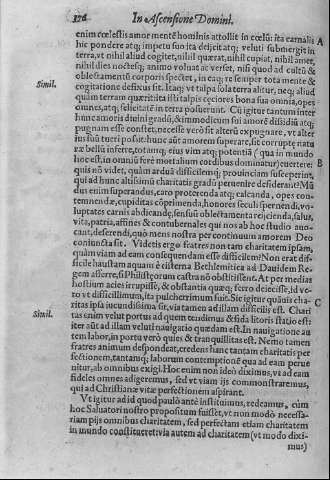 376 In Ascensione Domini.
enim cœlestis amor mentẽ hominis attollit in cœlũ: ita carnalis A
hic pondere atq; impetu suo ita deijcit atq; veluti submergit in
terra, vt nihil aliud cogitet, nihil quærat, nihil cupiat, nihil amet,
nihil dies noctesq; animo voluat ac verset, nisi quod ad cultũ &
Simil. oblectamentũ corporis spectet, in eaq; re semper tota mente &
cogitatione defixus sit. Itaq; vt talpa sola terra alitur, neq; aliud
quàm terram quæritit ista isti talpis cæciores bona sua omnia, opes
omnes, atq; felicitatẽ in terra posuerunt. Cũ igitur tantum inter
hunc amoris diuini gradũ, & immodicum sui amorẽ dissidiũ atq;
pugnam esse constet, necesse verò sit alterũ expugnare, vt alter
ius
hunc aut amorem superare, sit corrupte natu
ræ bellũ inferre, totamq; eius vim atq; potentiã (qua in mundo
hoc est, in omniũ ferè mortalium cordibus dominatur) euertere: B
quis nõ videt, quàm arduã difficilemq; prouinciam susceperint,
qui ad hunc altissimũ charitatis gradũ peruenire desiderant? Mũ
dus enim superandus, caro proterenda atq; calcanda, opes con-
temnendæ, cupiditas cõprimenda, honores seculi spernendi, vo-
luptates carnis abdicandę, sensuũ oblectamenta reijcienda, salus,
vita, patria, affines & contubernales qui nos ab hoc studio auo-
cant, deserendi, quò mens nostra per continuum amorem Deo
coniuncta sit. Videtis ergo fratres non tam charitatem ipsam,
quàm viam ad eam consequendam esse difficilem? Non erat dif-
ficile haustam aquam è cisterna Bethlemitica ad Dauidem Re-
gem afferre, si Philistęorum castra nõ obstitissent. At per medias
hostium acies irrupisse, & obstantia quæq; ferro deiecisse, id ve-
ro vt difficillimum, ita pulcherrimum fuit. Sic igitur quãuis cha- C
ritas ipsa iucundissima sit, via tamen ad illam difficilis est. Chari
Simil. tas enim velut portus ad quem tendimus & fida litoris statio est:
iter aũt ad illam veluti nauigatio quædam est. In nauigatione au
tem labor, in portu verò quies & tranquillitas est. Nemo tamen
fratres animum despondeat, credens hanc tantam charitatis per
fectionem, tantamq; laborum contemptionẽ qua ad eam perue
nitur, ab omnibus exigi. Hoc enim non ideò diximus, vt ad eam
fideles omnes adigeremus, sed vt viam ijs commonstraremus,
qui ad Christianæ vitæ perfectionem aspirant.
Vt igitur ad id quod paulò antè instituimus, redeamus, cùm
hoc Saluatori nostro propositum fuisset, vt non modò necessa-
riam pijs omnibus charitatem, sed perfectam etiam charitatem
in mundo constitueret: via autem ad charitatem (vt modo dixi-
mus)